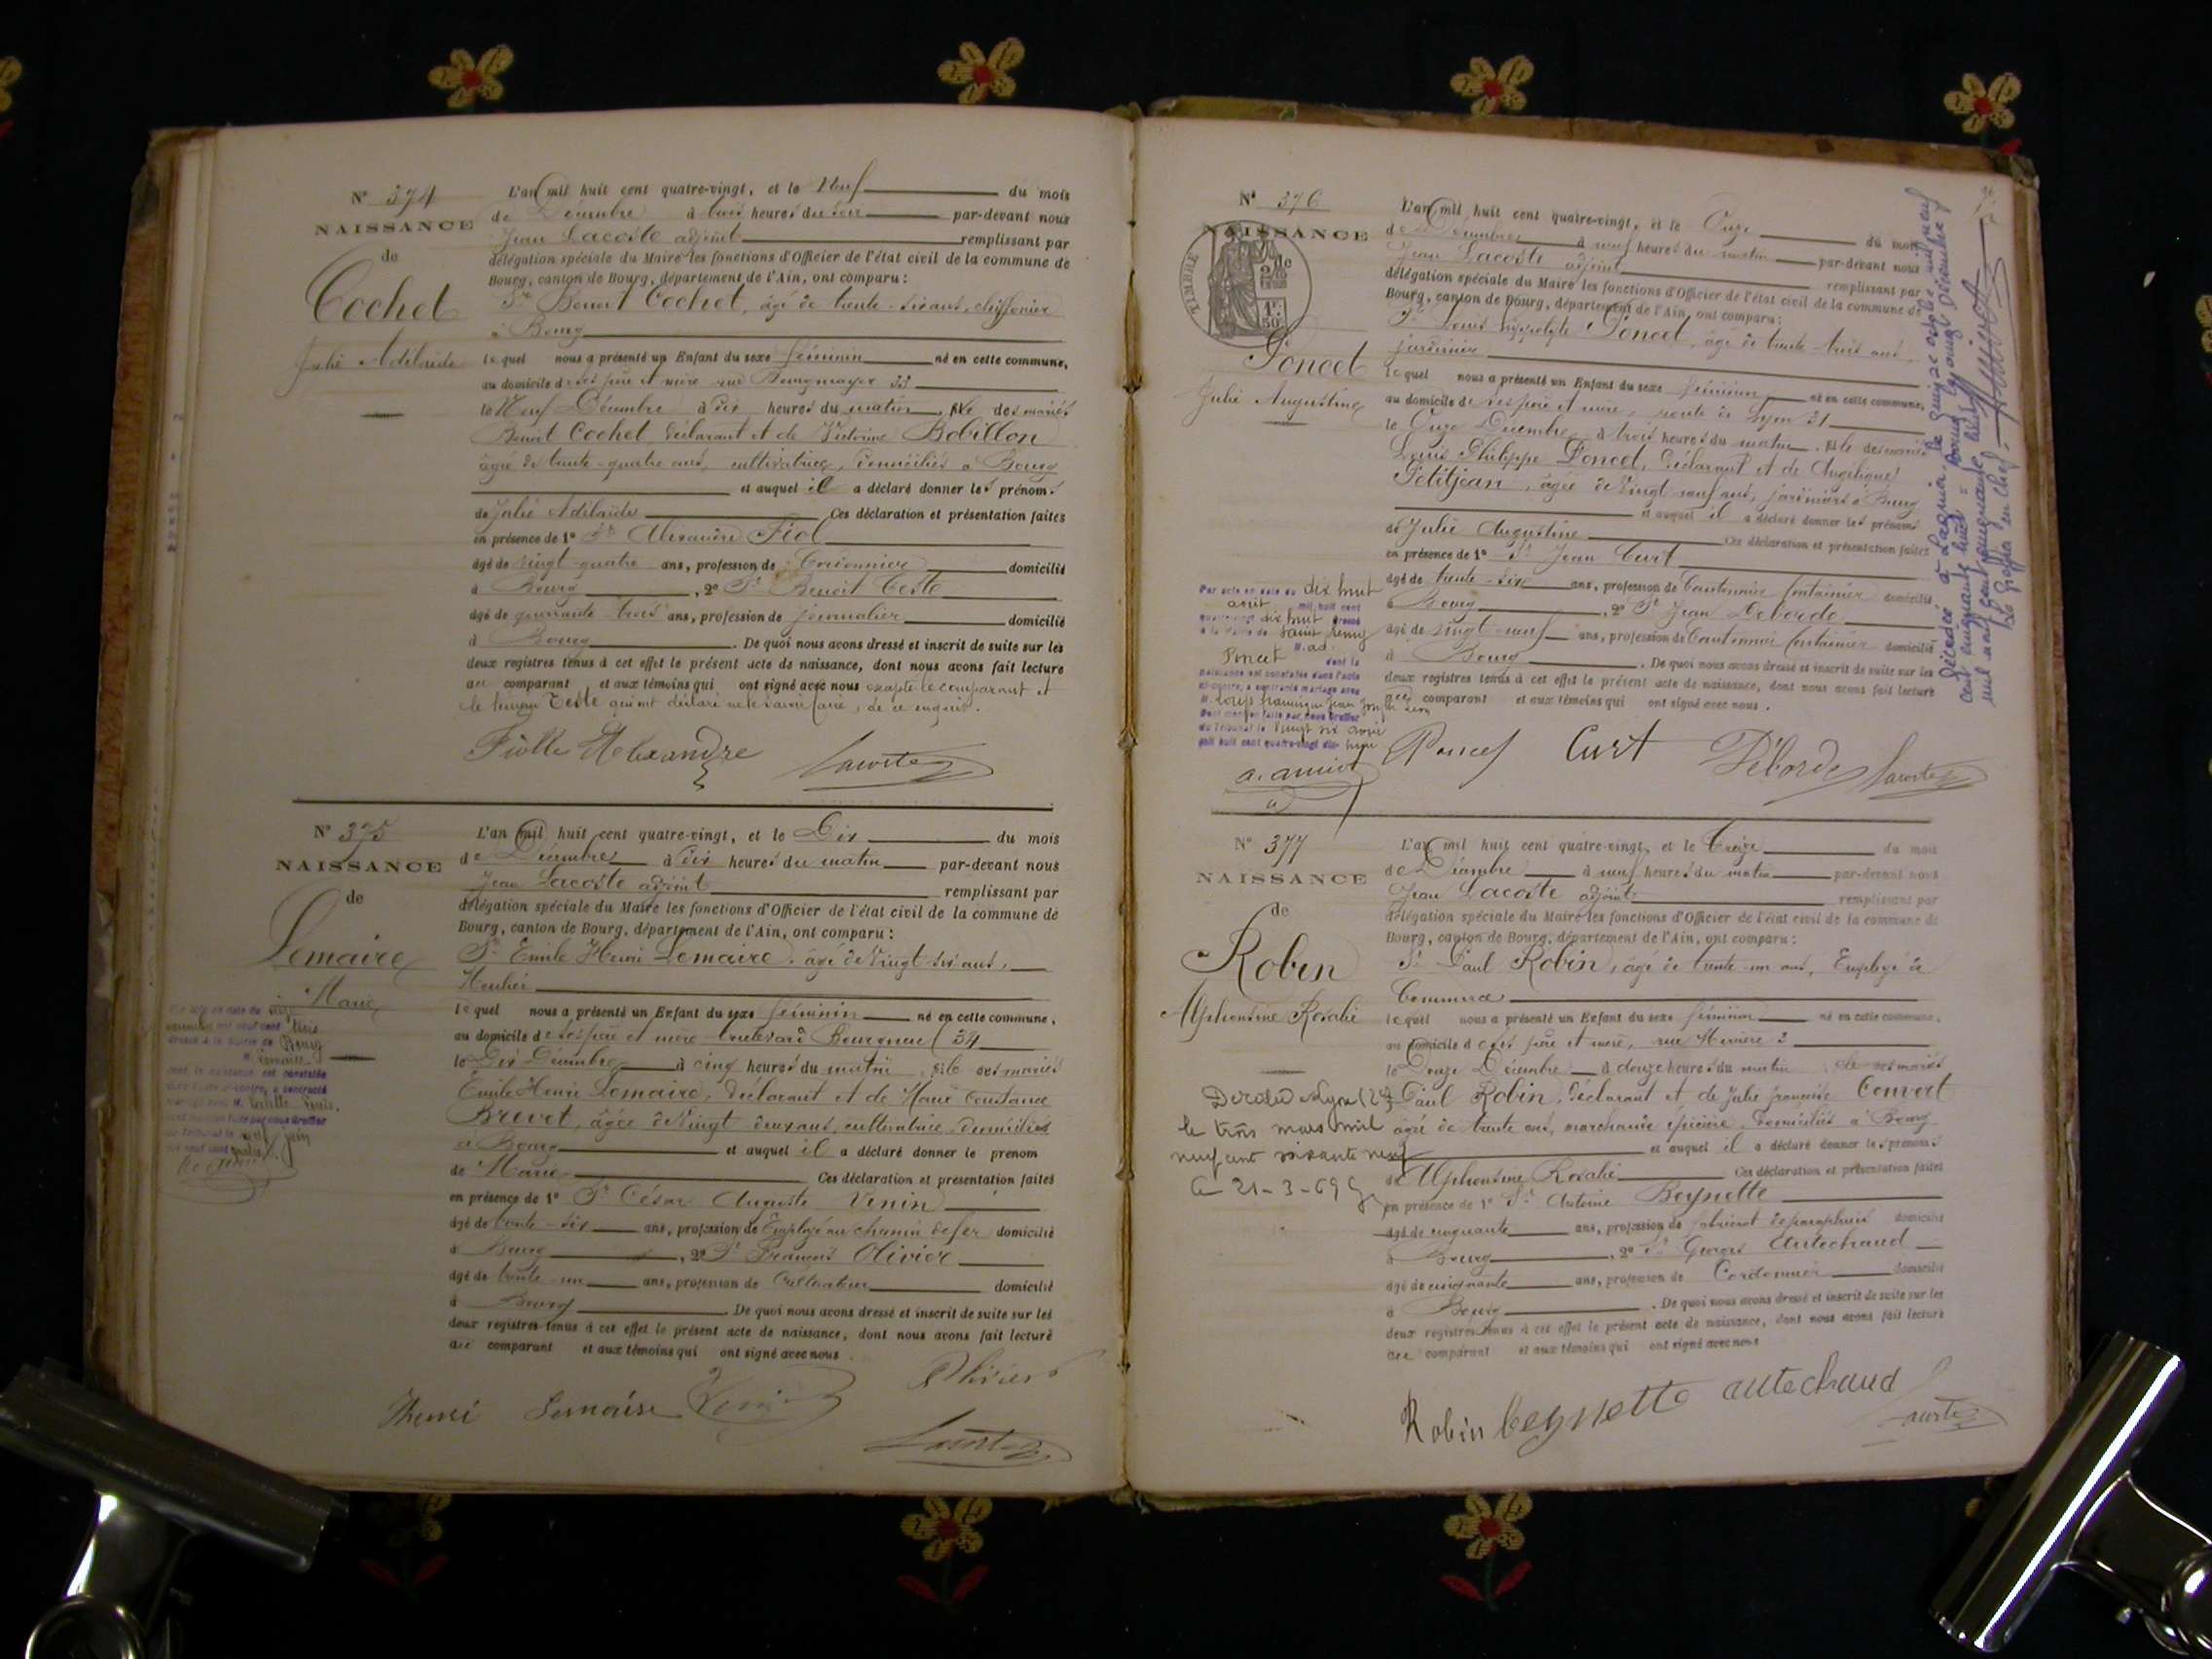 N° 374
NAISSANCE
de
Cochet
Julie Adélaïde
L'an mil huit cent quatre-vingt, et le Neuf du mois
de Décembre à trois heures du soir par-devant nous
Jean Lacoste adjoint remplissant par
délégation spéciale du Maire les fonctions d'Officier de l'état civil de la commune de
Bourg, canton de Bourg, département de l'Ain, ont comparu :
Sr Benoit Cochet, âgé de trente-six ans, chiffonier
à Bourg
lequel nous a présenté un Enfant du sexe féminin né en cette commune,
au domicile de ses père et mère rue Bourgmayer 33
le Neuf Décembre à dix heures du matin, fille des mariés
Benoit Cochet, déclarant et de Victorine Bobillon
âgée de trente-quatre ans, cultivatrice, domiciliés à Bourg
et auquel il a déclaré donner les prénoms
de Julie Adélaïde Ces déclaration et présentation faites
en présence de 1° Sr Alexandre Fiol
âgé de vingt-quatre ans, profession de Cordonnier domicilié
à Bourg, 2° Sr Benoit Teste
âgé de quarante trois ans, profession de journalier domicilié
à Bourg. De quoi nous avons dressé et inscrit de suite sur les
deux registres tenus à cet effet le présent acte de naissance, dont nous avons fait lecture
au comparant et aux témoins qui ont signé avec nous excepté le comparant et
le témoin Teste qui ont déclaré ne le savoir faire, de ce enquis.
Fiolle Alexandre Lacoste
N° 375
NAISSANCE
de
Lemaire
Marie
L'an mil huit cent quatre-vingt, et le Dix du mois
de Décembre à dix heures du matin par-devant nous
Jean Lacoste adjoint remplissant par
délégation spéciale du Maire les fonctions d'Officier de l'état civil de la commune de
Bourg, canton de Bourg, département de l'Ain, ont comparu :
Sr Emile Henri Lemaire, âgé de vingt-six ans,
lequel nous a présenté un Enfant du sexe féminin né en cette commune,
au domicile de ses père et mère boulevard 34
le Dix Décembre à cinq heures du matin, fille des mariés
Emile Henri Lemaire, déclarant et de Marie Constance
Brevet, âgée de vingt deux ans, cultivatrice, domiciliés
à Bourg et auquel il a déclaré donner le prénom
de Marie Ces déclaration et présentation faites
en présence de 1° Sr César Auguste Venin
âgé de trente-six ans, profession de Employé au chemin de fer domicilié
à Bourg, 2° Sr François Olivier
âgé de trente-un ans, profession de Cultivateur domicilié
à Bourg. De quoi nous avons dressé et inscrit de suite sur les
deux registres tenus à cet effet le présent acte de naissance, dont nous avons fait lecture
au comparant et aux témoins qui ont signé avec nous.
Olivier
Lacoste
N° 376
NAISSANCE
de
TIMBRE
Poncet
Julie Augustine
L'an mil huit cent quatre-vingt, et le Onze du mois
de Décembre à neuf heures du matin par-devant nous
Jean Lacoste adjoint remplissant par
délégation spéciale du Maire les fonctions d'Officier de l'état civil de la commune de
Bourg, canton de Bourg, département de l'Ain, ont comparu :
Sr Louis hippolyte Poncet, âgé de trente-trois ans,
jardinier
lequel nous a présenté un Enfant du sexe féminin né en cette commune,
au domicile de ses père et mère, route de Lyon 31
le Onze Décembre à trois heures du matin, fille des mariés
Louis Philippe Poncet, déclarant et de Angélique
Petitjean, âgée de vingt-neuf ans, jardiniers à Bourg
et auquel il a déclaré donner les prénoms
de Julie Augustine Ces déclaration et présentation faites
en présence de 1° Sr Jean Curt
âgé de trente-six ans, profession de Cantonnier fontainier domicilié
à Bourg, 2° Sr Jean Deborde
âgé de vingt-neuf ans, profession de Cantonnier fontainier domicilié
à Bourg. De quoi nous avons dressé et inscrit de suite sur les
deux registres tenus à cet effet le présent acte de naissance, dont nous avons fait lecture
au comparant et aux témoins qui ont signé avec nous.
Poncet Curt Déborde Lacoste
Par acte en date du dix huit
août mil huit cent
quatre-vingt dix huit dressé
à la mairie de Saint Remy
Poncet dont la
naissance est constatée dans l'acte
ci-contre, a contracté mariage avec
du Tribunal le vingt six août
mil huit cent quatre-vingt dix-huit
a. amiot
Décédée à Lagnieu, le quinze octobre mil neuf
cent cinquante huit = Bourg le onze Décembre
mil neuf cent cinquante huit
Le Greffier en Chef.
N° 377
NAISSANCE
de
Robin
Alphonsine Rosalie
L'an mil huit cent quatre-vingt, et le Treize du mois
de Décembre à neuf heures du matin par-devant nous
Jean Lacoste adjoint remplissant par
délégation spéciale du Maire les fonctions d'Officier de l'état civil de la commune de
Bourg, canton de Bourg, département de l'Ain, ont comparu :
Sr Paul Robin, âgé de trente-un ans, Employé de
Commerce
lequel nous a présenté un Enfant du sexe féminin né en cette commune,
au domicile de ses père et mère, rue 2
le Douze Décembre à douze heures du matin, fille des mariés
Paul Robin, déclarant et de Julie françoise Convert
âgée de trente ans, marchande épicière, domiciliés à Bourg
et auquel il a déclaré donner les prénoms
de Alphonsine Rosalie Ces déclaration et présentation faites
en présence de 1° Sr Antoine Beynette
âgé de cinquante ans, profession de fabricant de parapluies domicilié
à Bourg, 2° Sr Georges Autechaud
âgé de cinquante ans, profession de Cordonnier domicilié
à Bourg. De quoi nous avons dressé et inscrit de suite sur les
deux registres tenus à cet effet le présent acte de naissance, dont nous avons fait lecture
au comparant et aux témoins qui ont signé avec nous
Robin beynette autechaud Lacoste
Décédée à Lyon (2e)
le trois mars mil
neuf cent soixante neuf
21-3-69